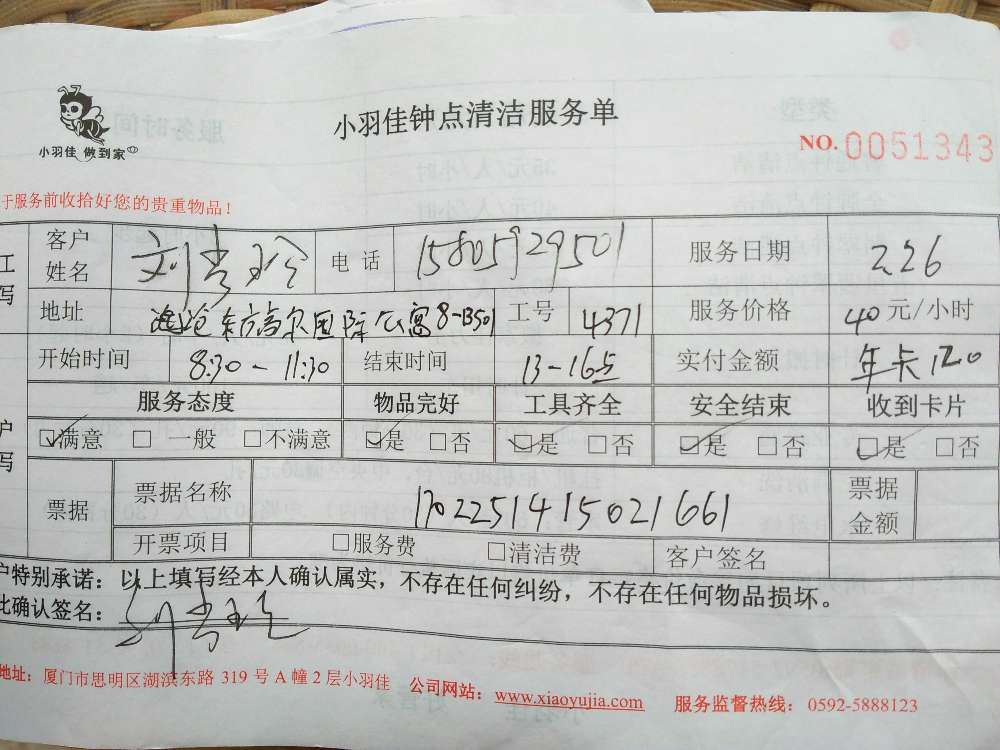 小羽佳钟点清洁服务单
小羽佳 做到家
NO. 0051343
于服务前收拾好您的贵重物品!
客户姓名 电话 15805929501 服务日期 2.26
地址 东方高尔国际公寓8-B501 工号 4371 服务价格 40元/小时
开始时间 8:30-11:30 结束时间 13-16 实付金额 年卡120
服务态度 物品完好 工具齐全 安全结束 收到卡片
☑满意 □一般 □不满意 ☑是 □否 ☑是 □否 ☑是 □否 ☑是 □否
票据 票据名称 1702251415021661 票据金额
开票项目 □服务费 □清洁费 客户签名
户特别承诺：以上填写经本人确认属实，不存在任何纠纷，不存在任何物品损坏。
此确认签名：
地址：厦门市思明区湖滨东路 319 号 A 幢 2 层小羽佳 公司网站：www.xiaoyujia.com 服务监督热线：0592-5888123